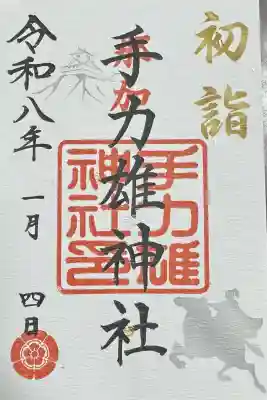 初詣
奉拝
手力雄神社
手力雄
神社印
令和八年
一月
四日